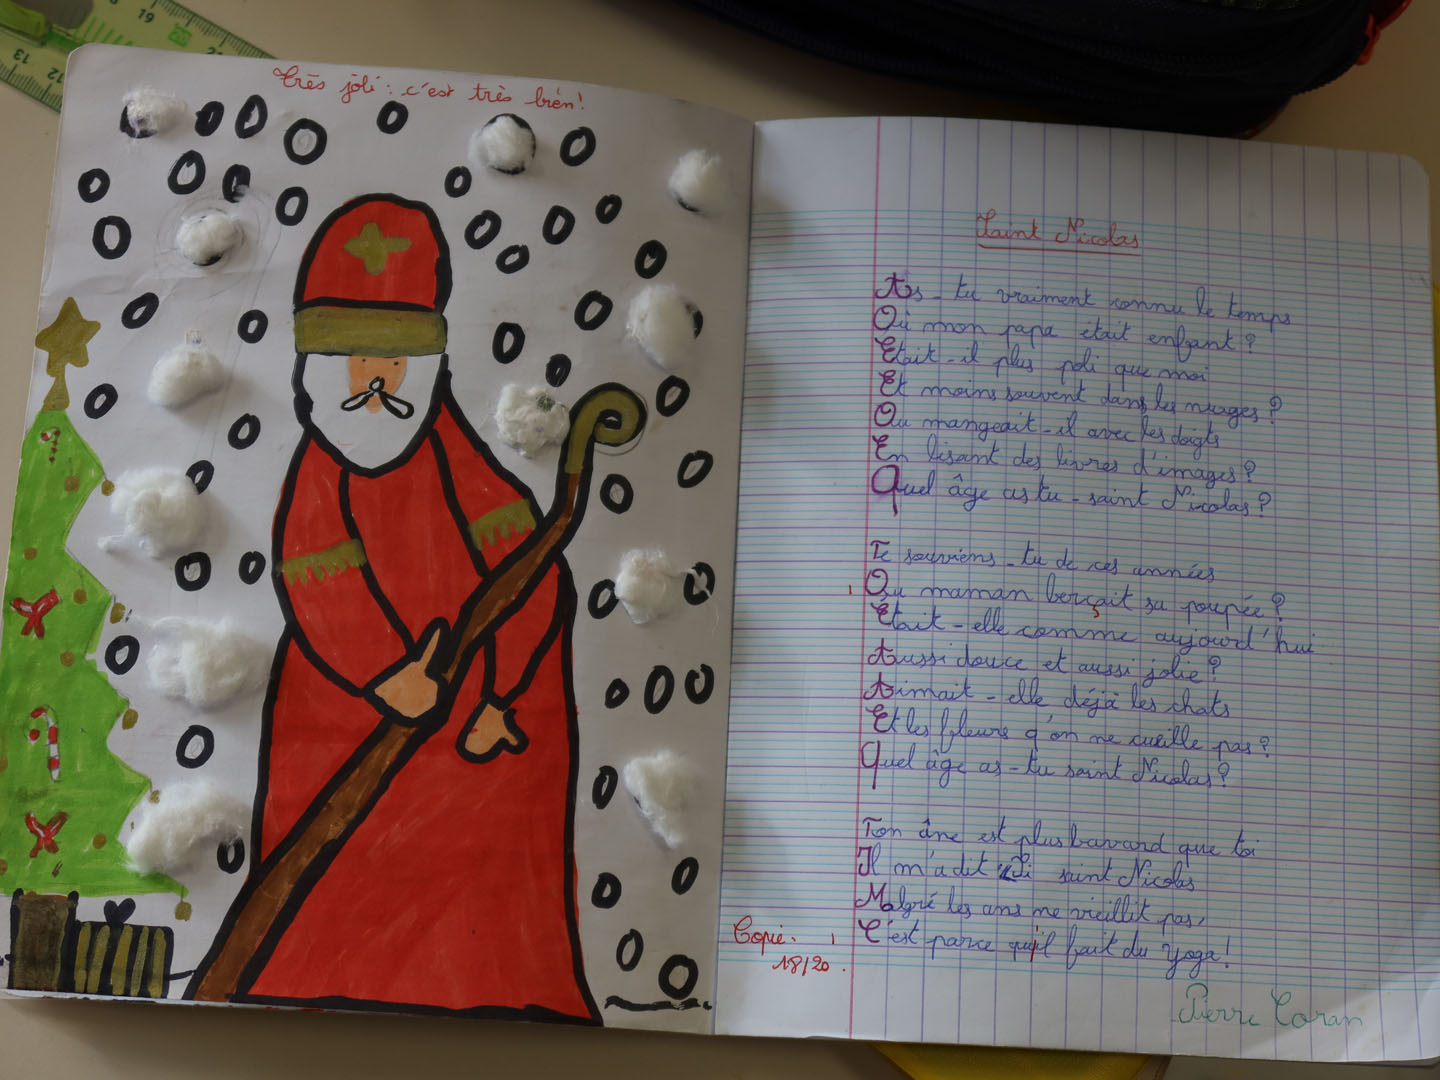 Très joli : c'est très bien!
Saint Nicolas
As-tu vraiment connu le temps
Où mon papa etait enfant ?
Etait-il plus poli que moi
Et moins souvent dans les nuages ?
Ou mangeait-il avec les doigts
En lisant des livres d'images ?
Quel âge as tu - saint Nicolas ?
Te souviens-tu de ces années
Ou maman berçait sa poupée ?
Était-elle comme aujourd'hui
Aussi douce et aussi jolie ?
Aimait-elle déjà les chats
Et les fleurs q'on ne cueille pas ?
Quel âge as-tu saint Nicolas ?
Ton âne est plus bavard que toi
Il m'a dit « Si saint Nicolas
Malgré les ans ne vieillit pas,
C'est parce qu'il fait du yoga !
Copie. 1
18/20.
Pierre Coran
19
20
13
12